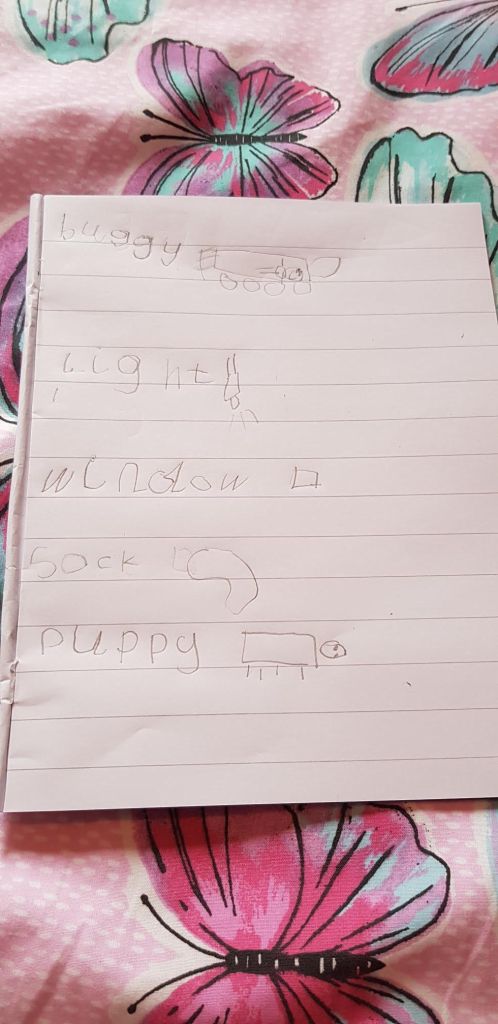 buggy
light
window
sock
puppy